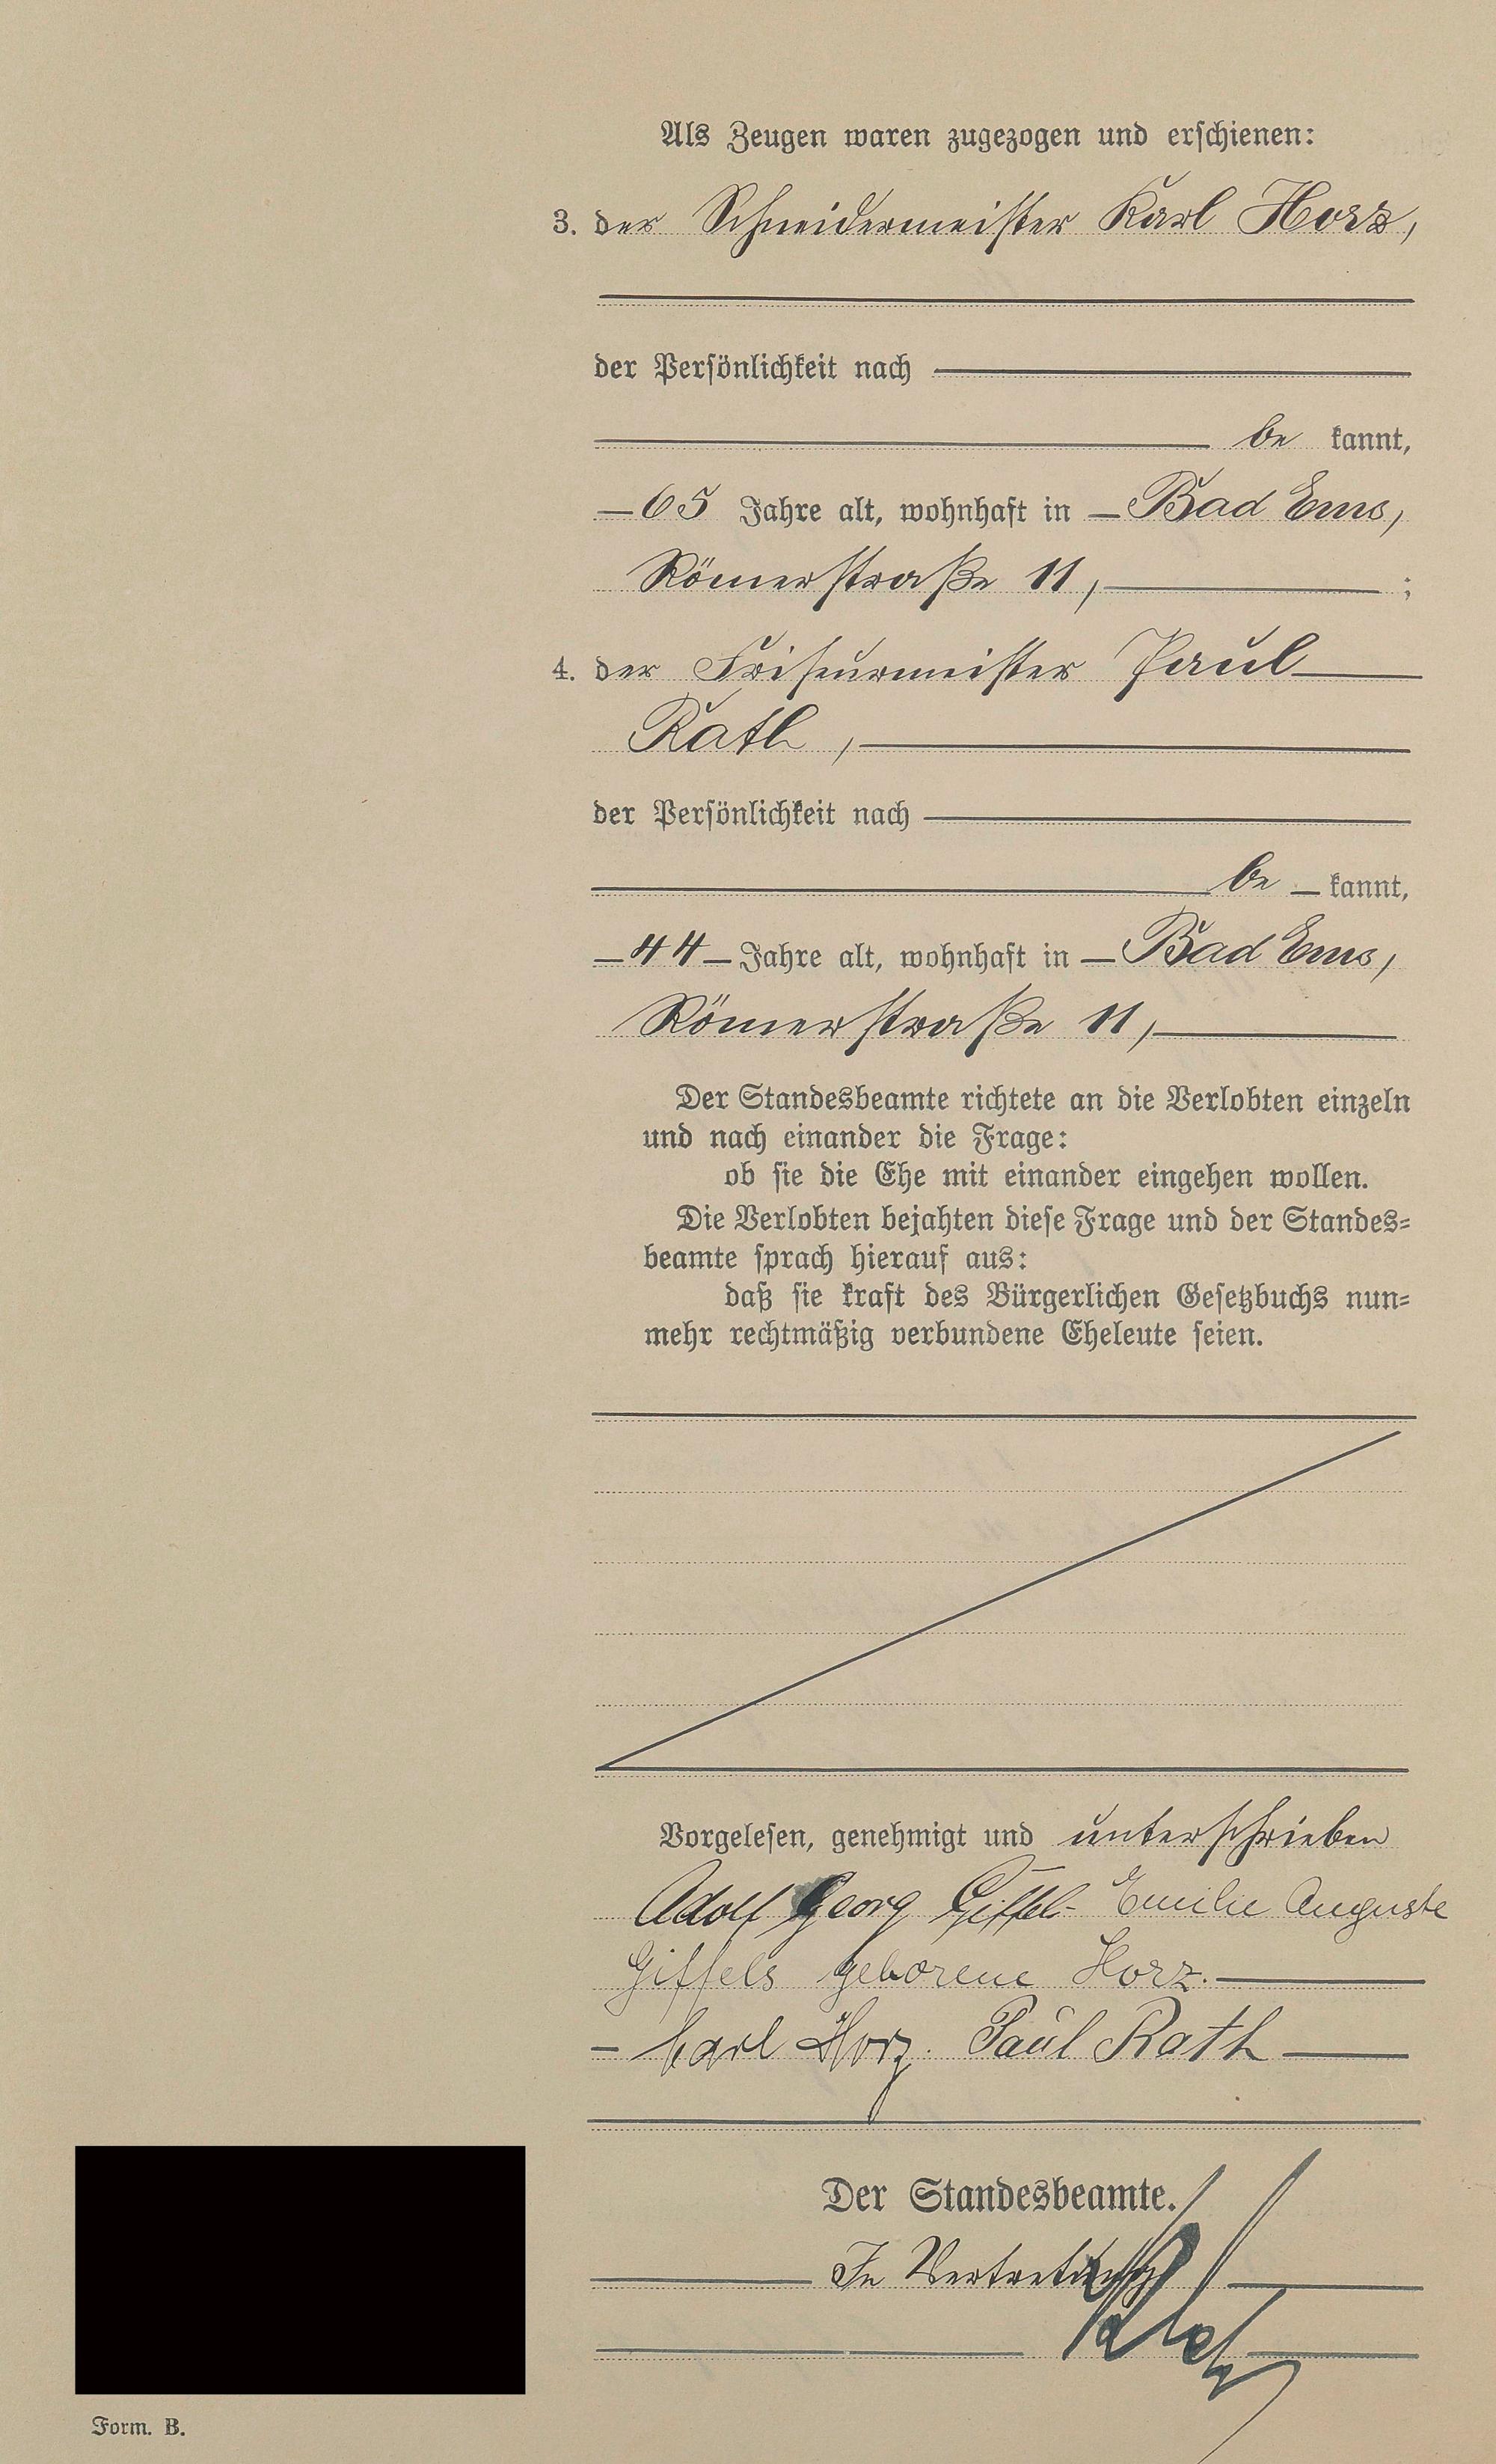 Als Zeugen waren zugezogen und erschienen:
3. der Schneidermeister Karl Horz,
der Persönlichkeit nach
be kannt,
65 Jahre alt, wohnhaft in Bad Ems,
Römerstraße 11, ;
4. der Friseurmeister Paul
Rath,
der Persönlichkeit nach
be kannt,
44 Jahre alt, wohnhaft in Bad Ems,
Römerstraße 11,
Der Standesbeamte richtete an die Verlobten einzeln
und nach einander die Frage:
ob sie die Ehe mit einander eingehen wollen.
Die Verlobten bejahten diese Frage und der Standes-
beamte sprach hierauf aus:
daß sie kraft des Bürgerlichen Gesetzbuchs nun-
mehr rechtmäßig verbundene Eheleute seien.
Vorgelesen, genehmigt und unterschrieben
Adolf Georg Giffels Emilie Auguste
Giffels geborene Horz.
Carl Horz. Paul Rath
Der Standesbeamte.
In Vertretung
Form. B.